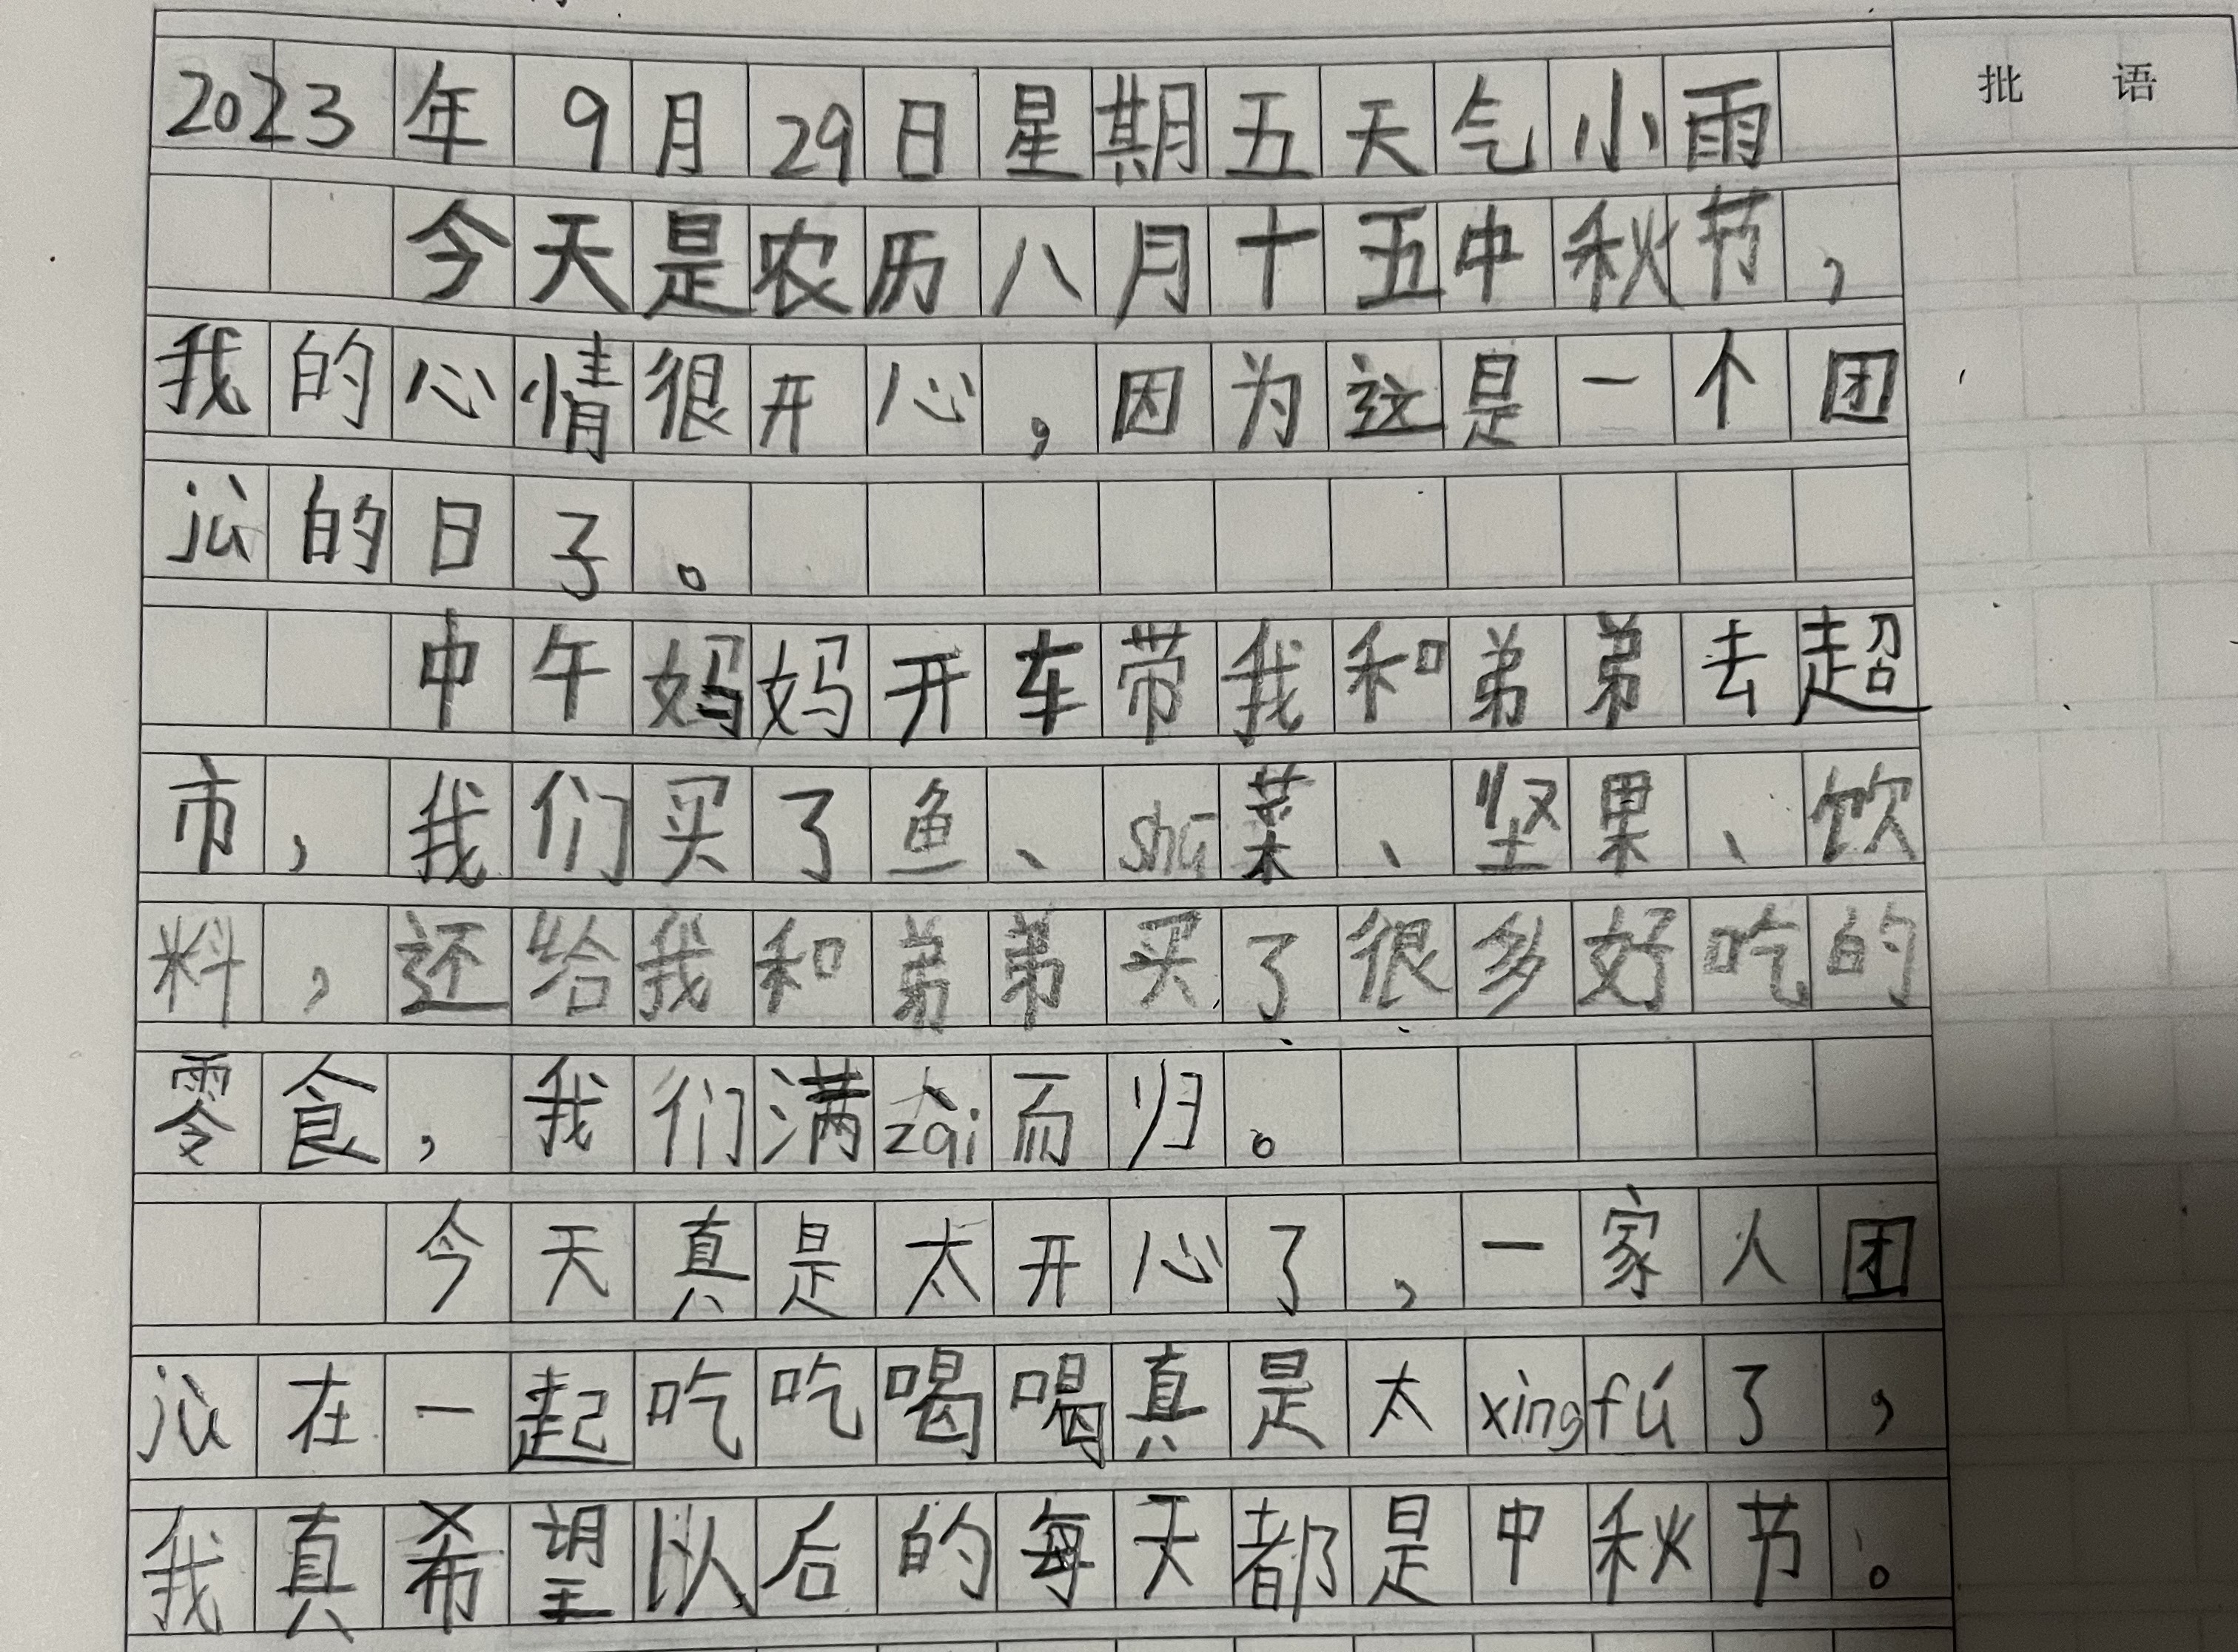 批 语
2023年9月29日星期五天气小雨
今天是农历八月十五中秋节，
我的心情很开心，因为这是一个团
jù的日子。
中午妈妈开车带我和弟弟去超
市，我们买了鱼、shū菜、坚果、饮
料，还给我和弟弟买了很多好吃的
零食，我们满zài而归。
今天真是太开心了，一家人团
jù在一起吃吃喝喝真是太xìngfú了，
我真希望以后的每天都是中秋节。